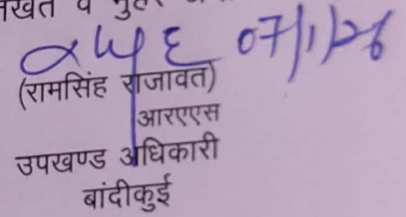 व मुहर
07/1/26
(रामसिंह राजावत)
आरएएस
उपखण्ड अधिकारी
बांदीकुई